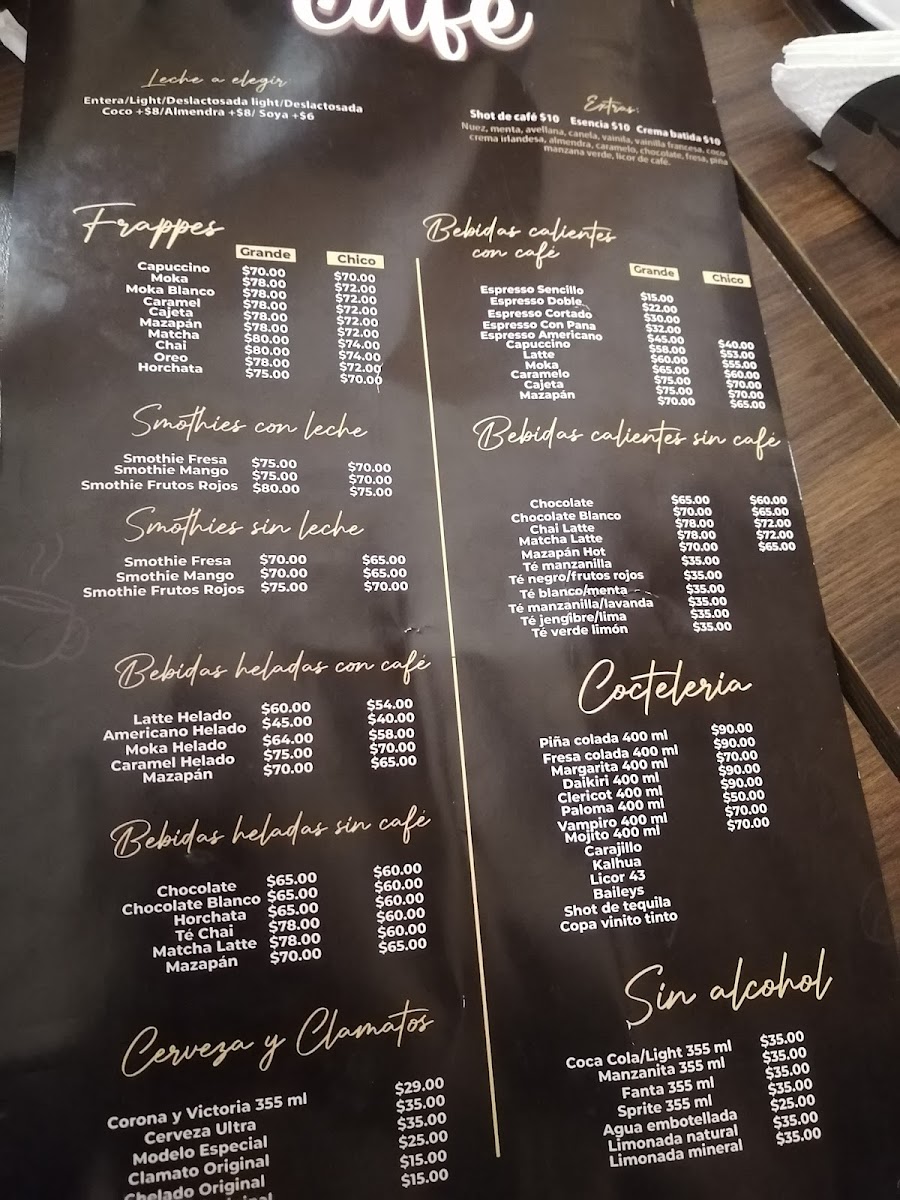 Café
Leche a elegir
Entera/Light/Deslactosada light/Deslactosada
Coco +$8/Almendra +$8/ Soya +$6
Extras:
Shot de café $10 Esencia $10 Crema batida $10
Nuez, menta, avellana, canela, vainila, vainilla francesa, coco
crema irlandesa, almendra, caramelo, chocolate, fresa, piña
manzana verde, licor de café.
Frappes
Grande Chico
Capuccino $70.00 $70.00
Moka $78.00 $72.00
Moka Blanco $78.00 $72.00
Caramel $78.00 $72.00
Cajeta $78.00 $72.00
Mazapán $78.00 $72.00
Matcha $80.00 $74.00
Chai $80.00 $74.00
Oreo $78.00 $72.00
Horchata $75.00 $70.00
Smothies con leche
Smothie Fresa $75.00 $70.00
Smothie Mango $75.00 $70.00
Smothie Frutos Rojos $80.00 $75.00
Smothies sin leche
Smothie Fresa $70.00 $65.00
Smothie Mango $70.00 $65.00
Smothie Frutos Rojos $75.00 $70.00
Bebidas heladas con café
Latte Helado $60.00 $54.00
Americano Helado $45.00 $40.00
Moka Helado $64.00 $58.00
Caramel Helado $75.00 $70.00
Mazapán $70.00 $65.00
Bebidas heladas sin café
Chocolate $65.00 $60.00
Chocolate Blanco $65.00 $60.00
Horchata $65.00 $60.00
Té Chai $78.00 $60.00
Matcha Latte $78.00 $60.00
Mazapán $70.00 $65.00
Cerveza y Clamatos
Corona y Victoria 355 ml $29.00
Cerveza Ultra $35.00
Modelo Especial $35.00
Clamato Original $25.00
Chelado Original $15.00
$15.00
Bebidas calientes
con café
Grande Chico
Espresso Sencillo $15.00
Espresso Doble $22.00
Espresso Cortado $30.00
Espresso Con Pana $32.00
Espresso Americano $45.00 $40.00
Capuccino $58.00 $53.00
Latte $60.00 $55.00
Moka $65.00 $60.00
Caramelo $75.00 $70.00
Cajeta $75.00 $70.00
Mazapán $70.00 $65.00
Bebidas calientes sin café
Chocolate $65.00 $60.00
Chocolate Blanco $70.00 $65.00
Chai Latte $78.00 $72.00
Matcha Latte $78.00 $72.00
Mazapán Hot $70.00 $65.00
Té manzanilla $35.00
Té negro/frutos rojos $35.00
Té blanco/menta $35.00
Té manzanilla/lavanda $35.00
Té jengibre/lima $35.00
Té verde limón $35.00
Coctelería
Piña colada 400 ml $90.00
Fresa colada 400 ml $90.00
Margarita 400 ml $70.00
Daikiri 400 ml $90.00
Clericot 400 ml $90.00
Paloma 400 ml $50.00
Vampiro 400 ml $70.00
Mojito 400 ml $70.00
Carajillo
Kalhua
Licor 43
Baileys
Shot de tequila
Copa vinito tinto
Sin alcohol
Coca Cola/Light 355 ml $35.00
Manzanita 355 ml $35.00
Fanta 355 ml $35.00
Sprite 355 ml $35.00
Agua embotellada $25.00
Limonada natural $35.00
Limonada mineral $35.00